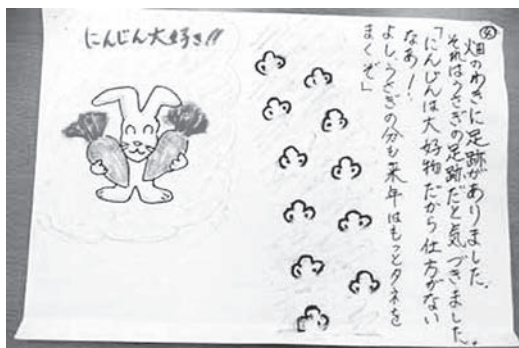 ④
畑のわきに足跡がありました。
それはうさぎの足跡だと気づきました。
「にんじんは大好物だから仕方がない
なあ！
よし、うさぎの分も来年はもっとタネを
まくぞ」
にんじん大好き!!